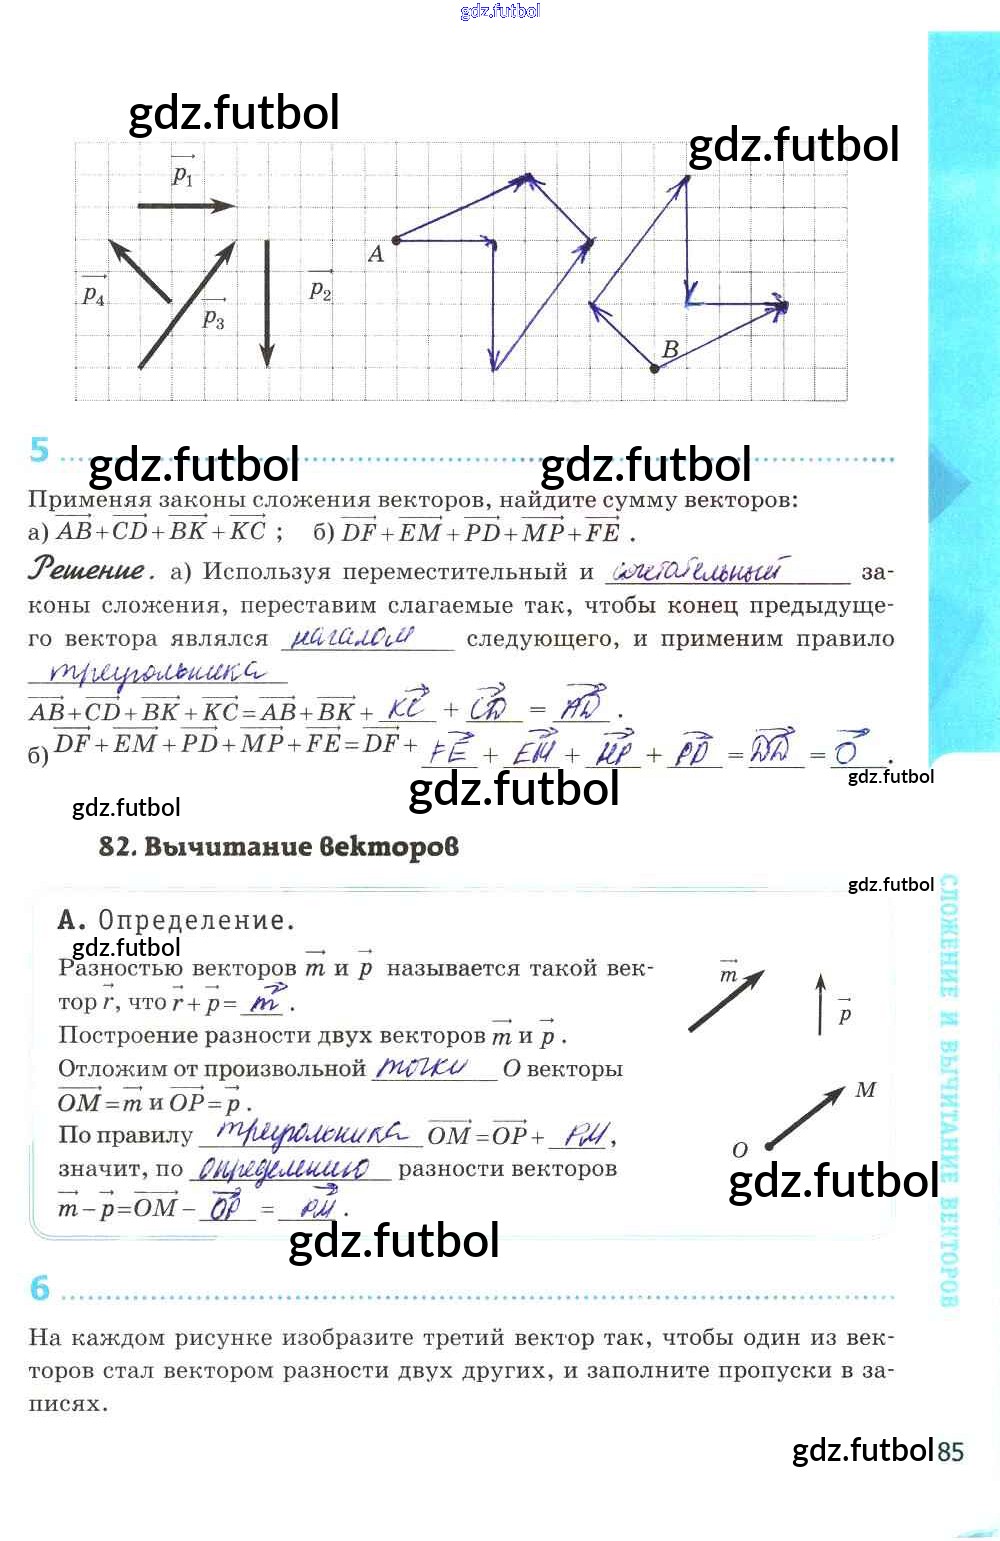 gdz.futbol
gdz.futbol
gdz.futbol
p₁
A
p₄
p₂
p₃
B
5
gdz.futbol gdz.futbol
Применяя законы сложения векторов, найдите сумму векторов:
а) AB + CD + BK + KC ; б) DF + EM + PD + MP + FE .
Решение. а) Используя переместительный и сочетательный за-
коны сложения, переставим слагаемые так, чтобы конец предыдуще-
го вектора являлся началом следующего, и применим правило
треугольника
AB + CD + BK + KC = AB + BK + KC + CD = AD .
б) DF + EM + PD + MP + FE = DF + FE + EM + MP + PD = DD = O .
gdz.futbol
gdz.futbol
gdz.futbol
82. Вычитание векторов
gdz.futbol
А. Определение.
gdz.futbol
Разностью векторов m и p называется такой век-
тор r, что r + p = m .
Построение разности двух векторов m и p .
Отложим от произвольной точки O векторы
OM = m и OP = p .
По правилу треугольника OM = OP + PM ,
значит, по определению разности векторов
m – p = OM – OP = PM .
m
p
M
O
gdz.futbol
gdz.futbol
СЛОЖЕНИЕ И ВЫЧИТАНИЕ ВЕКТОРОВ
6
На каждом рисунке изобразите третий вектор так, чтобы один из век-
торов стал вектором разности двух других, и заполните пропуски в за-
писях.
gdz.futbol 85